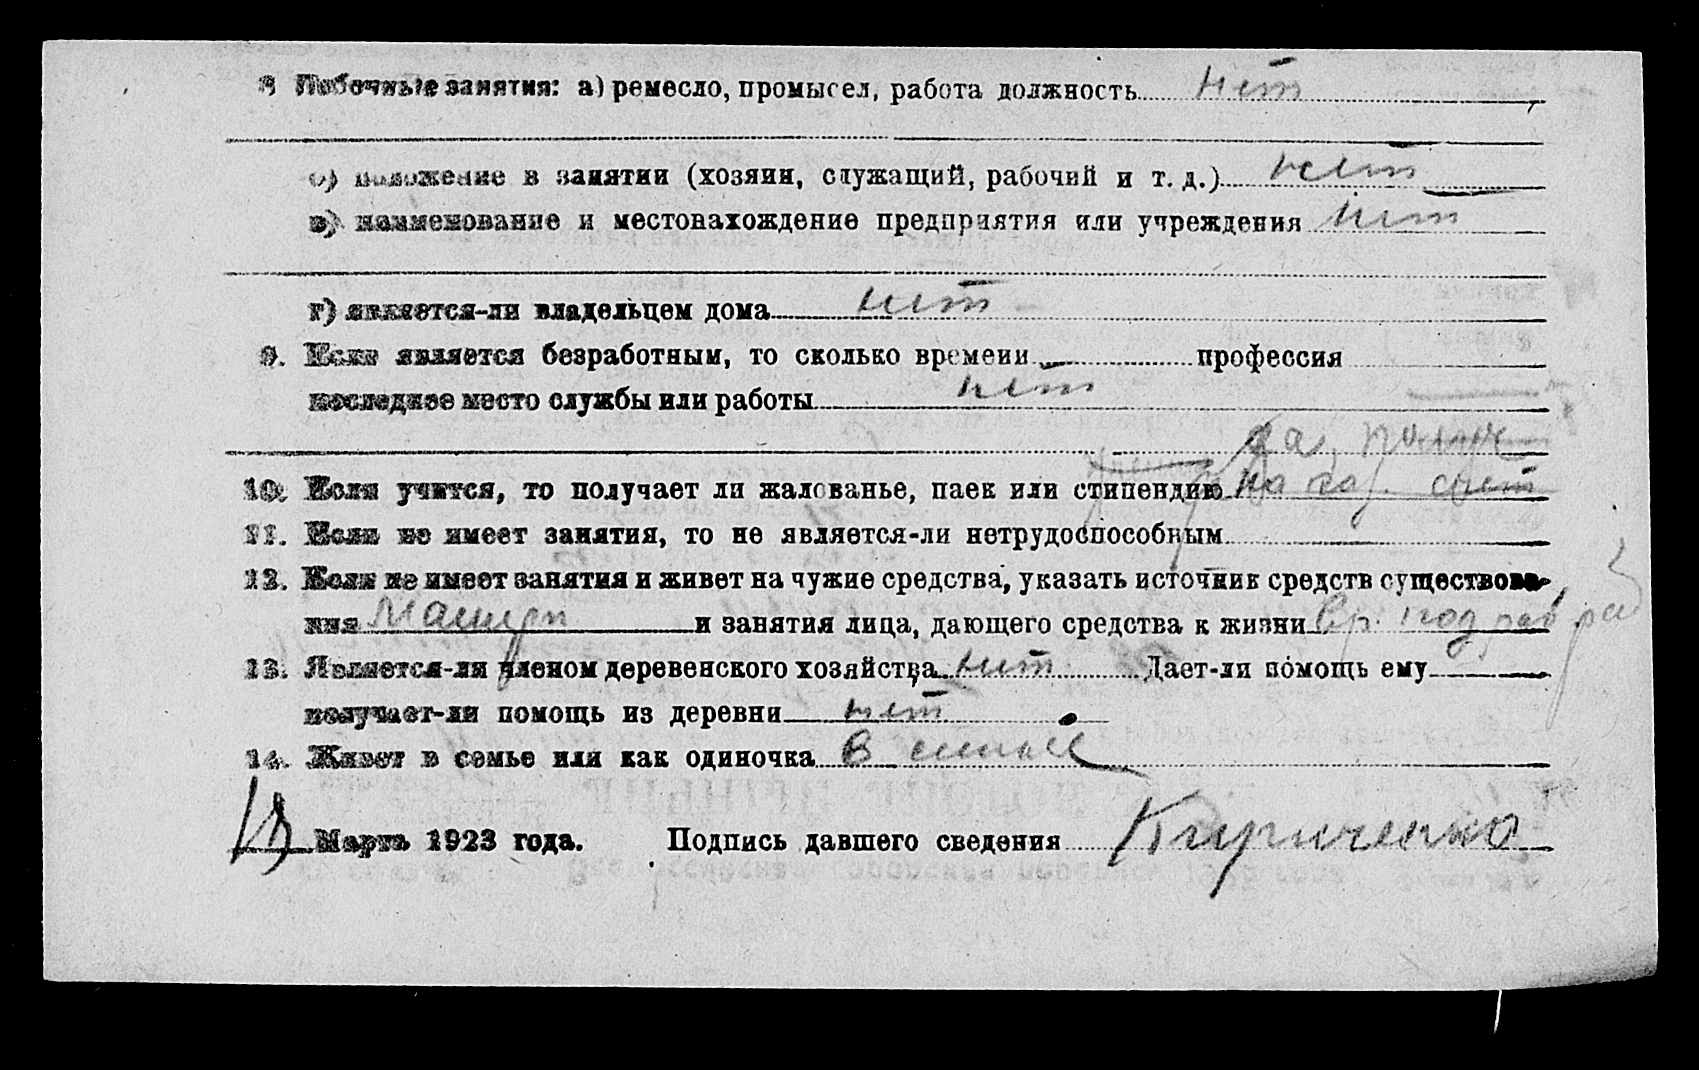 8 Побочные занятия: а) ремесло, промысел, работа должность нет
б) положение в занятии (хозяин, служащий, рабочий и т. д.) нет
в) наименование и местонахождение предприятия или учреждения нет
г) является-ли владельцем дома нет
9. Если является безработным, то сколько времени профессия
последнее место службы или работы нет
да,
10. Если учится, то получает ли жалованье, паек или стипендию на гос. счет
11. Если не имеет занятия, то не является-ли нетрудоспособным
12. Если не имеет занятия и живет на чужие средства, указать источник средств существова-
ния и занятия лица, дающего средства к жизни
13. Является-ли членом деревенского хозяйства нет Дает-ли помощь ему
получает-ли помощь из деревни нет
14. Живет в семье или как одиночка В семье
Марта 1923 года. Подпись давшего сведения Кириченко